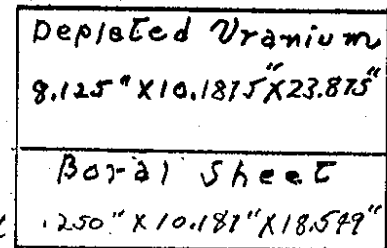 Depleted Uranium
8.125" X 10.1875" X 23.875"
Boral Sheet
.250" X 10.187" X 18.579"